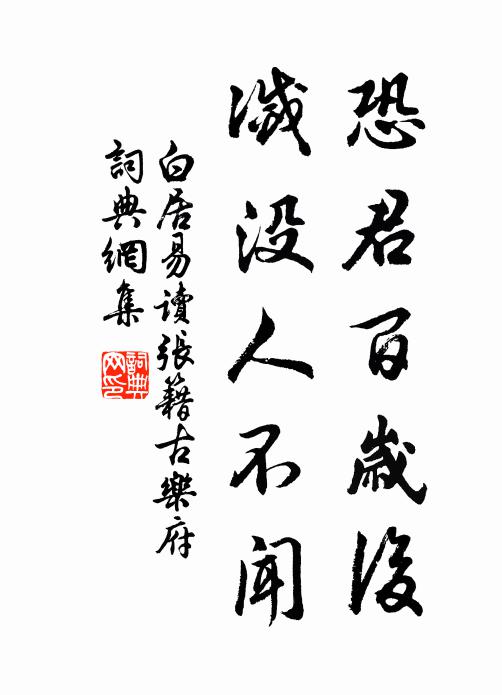 恐君百歲後
滅没人不聞
白居易讀張籍古樂府
詞典網集
詞典网印